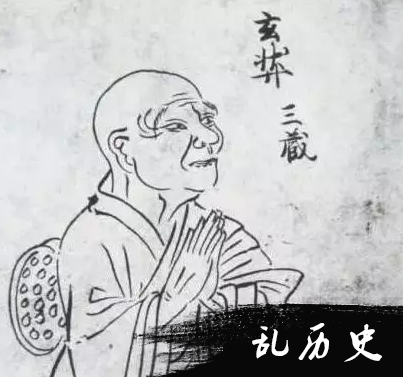 玄奘
三蔵
乱历史